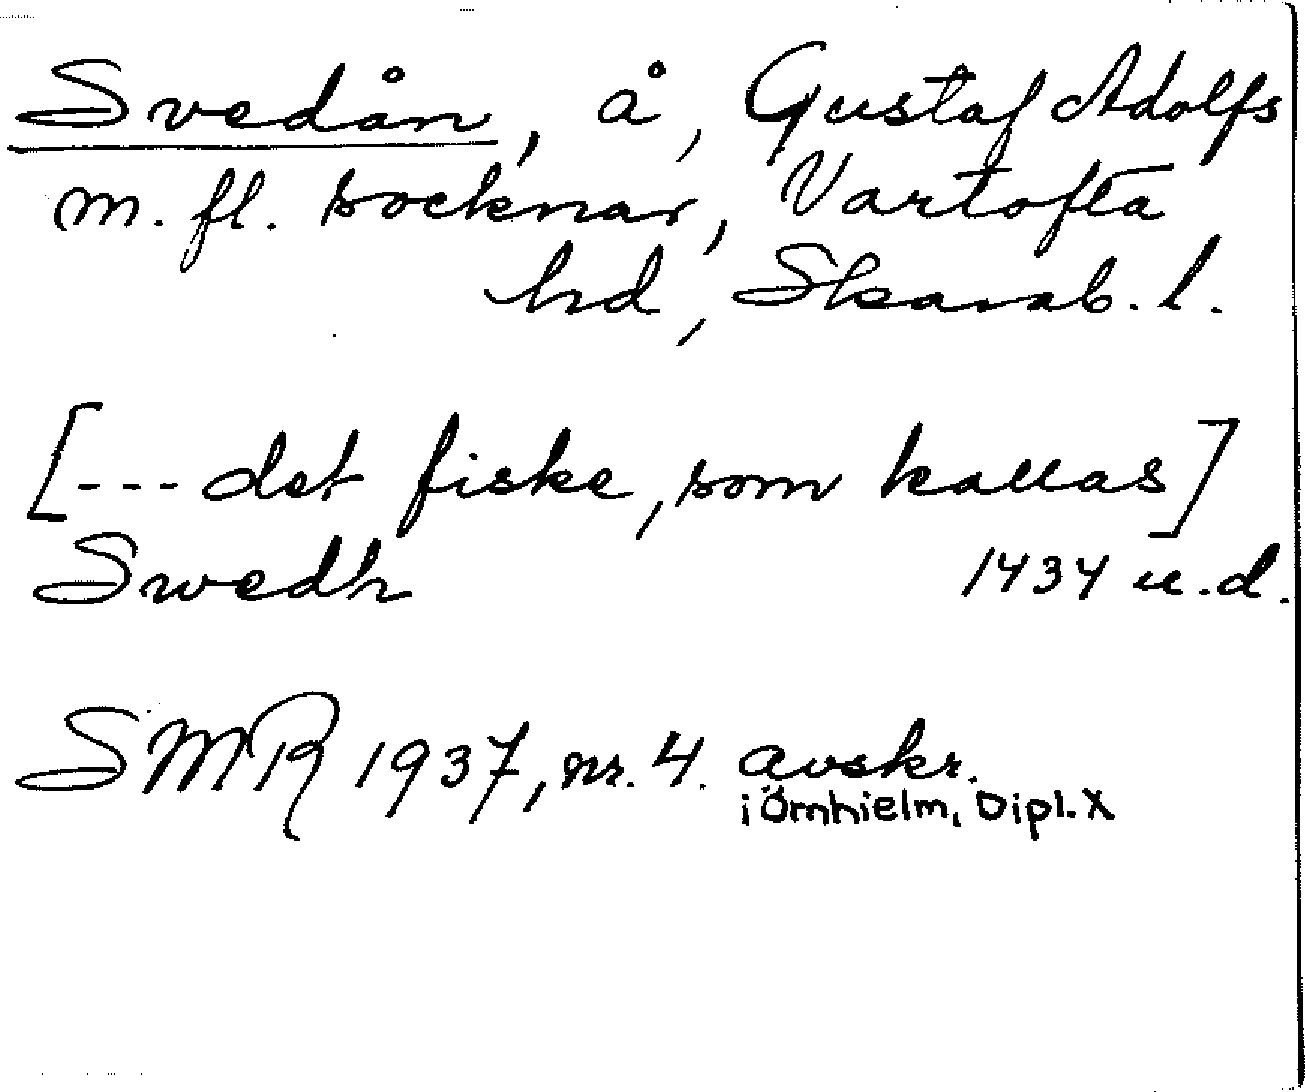 Svedån, å, Gustaf Adolfs
m. fl. socknar, Vartofta
hd, Skarab. l.
[--- det fiske, som kallas]
Swedh 1434 u.d.
SMR 1937, nr. 4. avskr.
i Örnhielm, Dipl. X